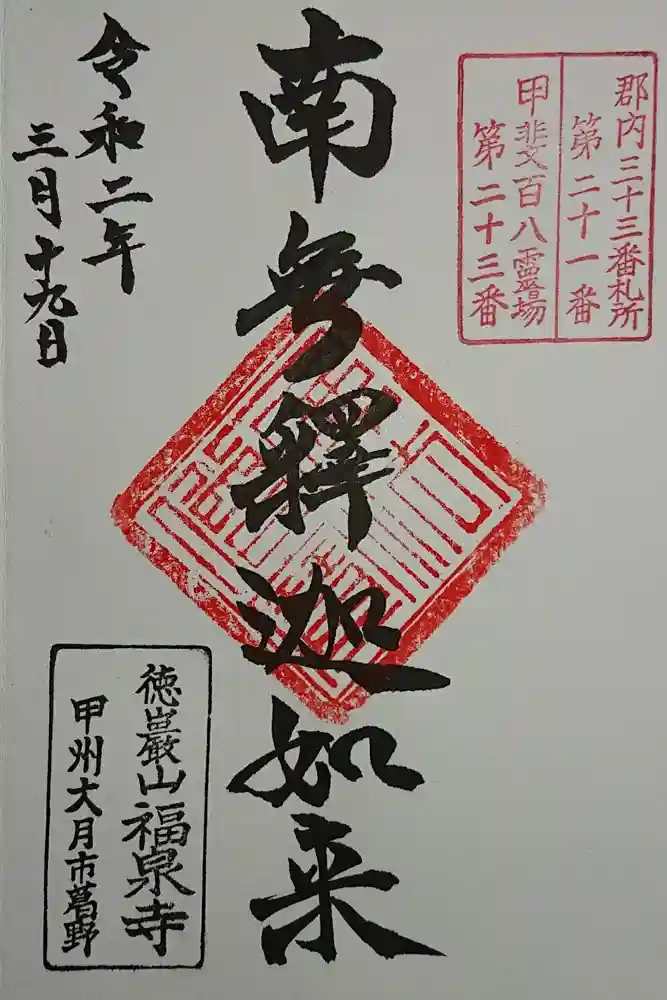 郡内三十三番札所
第二十一番
甲斐百八霊場
第二十三番
南無釋迦如来
令和二年
三月十九日
徳巌山福泉寺
甲州大月市葛野